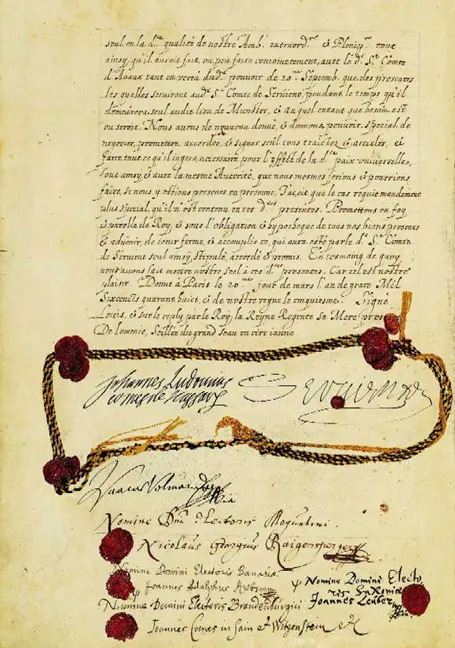 seul en la d.te qualité de nostre Amb. extraord.re & Plenip.re tout
ainsy qu'il auroit fait, ou peu faire conjointement, avec le d. S.r Comte
d'Avaux tant en vertu dud. pouvoir de 20.me Septemb. que des presentes
lesquelles serviront aud. S.r Comte de Servient, pendant le temps qu'il
demeurera seul audit lieu de Munster, & auquel entant que besoin est
ou seroit. Nous avons de nouveau donné, & donnons, pouvoir special de
negocier, promettre, accorder, & signer seul tous traictez, & articles, &
faire tout ce qu'il jugera necessaire pour l'effect de la d.te paix universelle,
tout ainsy & avec la mesme Autorité, que nous mesmes ferions & pourrions
faire, si nous y estions presens en personne, Jaçoit que le cas requit mandement
plus special, qu'il n'est contenu en ces d.tes presentes. Promettons en foy
& parolle de Roy, & sous l'obligation & hypoteque de tous nos biens presens
& advenir, de tenir ferme, & accomplir ce, qui aura esté par le d. S.r Comte
de Servient seul ainsy, stipulé, accordé & promis. En tesmoing de quoy
nous avons fait mettre nostre seel à ces d.tes presentes. Car tel est nostre
plaisir. Donné à Paris le 20.me jour de mars l'an de grace Mil
Sixcents quarante huict, & de nostre regne le cinquiesme. Signé
Louis, & sur le reply par le Roy, la Reyne Regente sa Mere presente
De Lomenie, Scellé du grand seau en cire jaune.
Johannes Ludovicus
comes de Nassau
Servient
Isaac Volmar
Nomine Dni Electoris Moguntini
Nicolaus Georgius Raigersperger
Nomine Domini Electoris Bavariae
Joannes Adolphus
Nomine Domini Electo
ris Saxoniae
Joannes Leuber
Nomine Domini Electoris Brandenburgici
Joannes Comes in Sain & Witgenstein